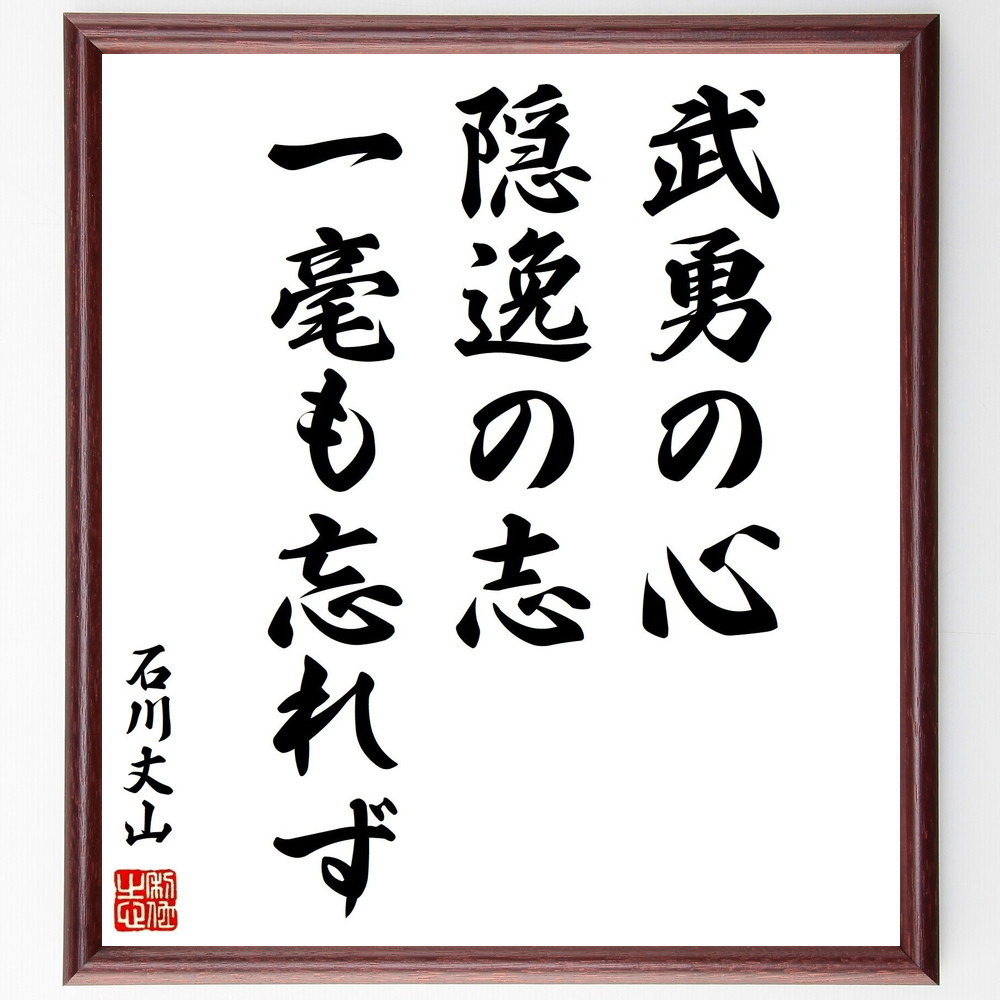 武勇の心
隠逸の志
一毫も忘れず
石川丈山